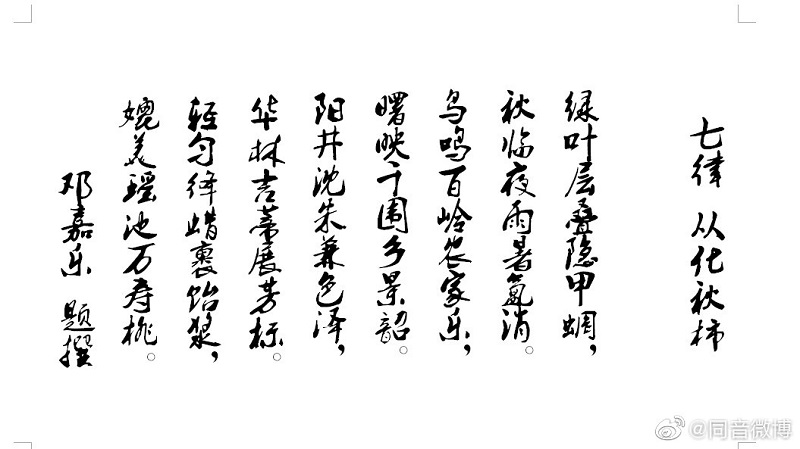 七律 从化秋柿
绿叶层叠隐甲蜩，
秋临夜雨暑氣消。
鸟鸣百岭农家乐，
曙映千围乡景韶。
阳井沈朱兼色泽，
华林吉蒂展芳标。
轻匀绛蜡裹饴浆，
媲美瑶池万寿桃。
邓嘉乐 题撰
@同音微博